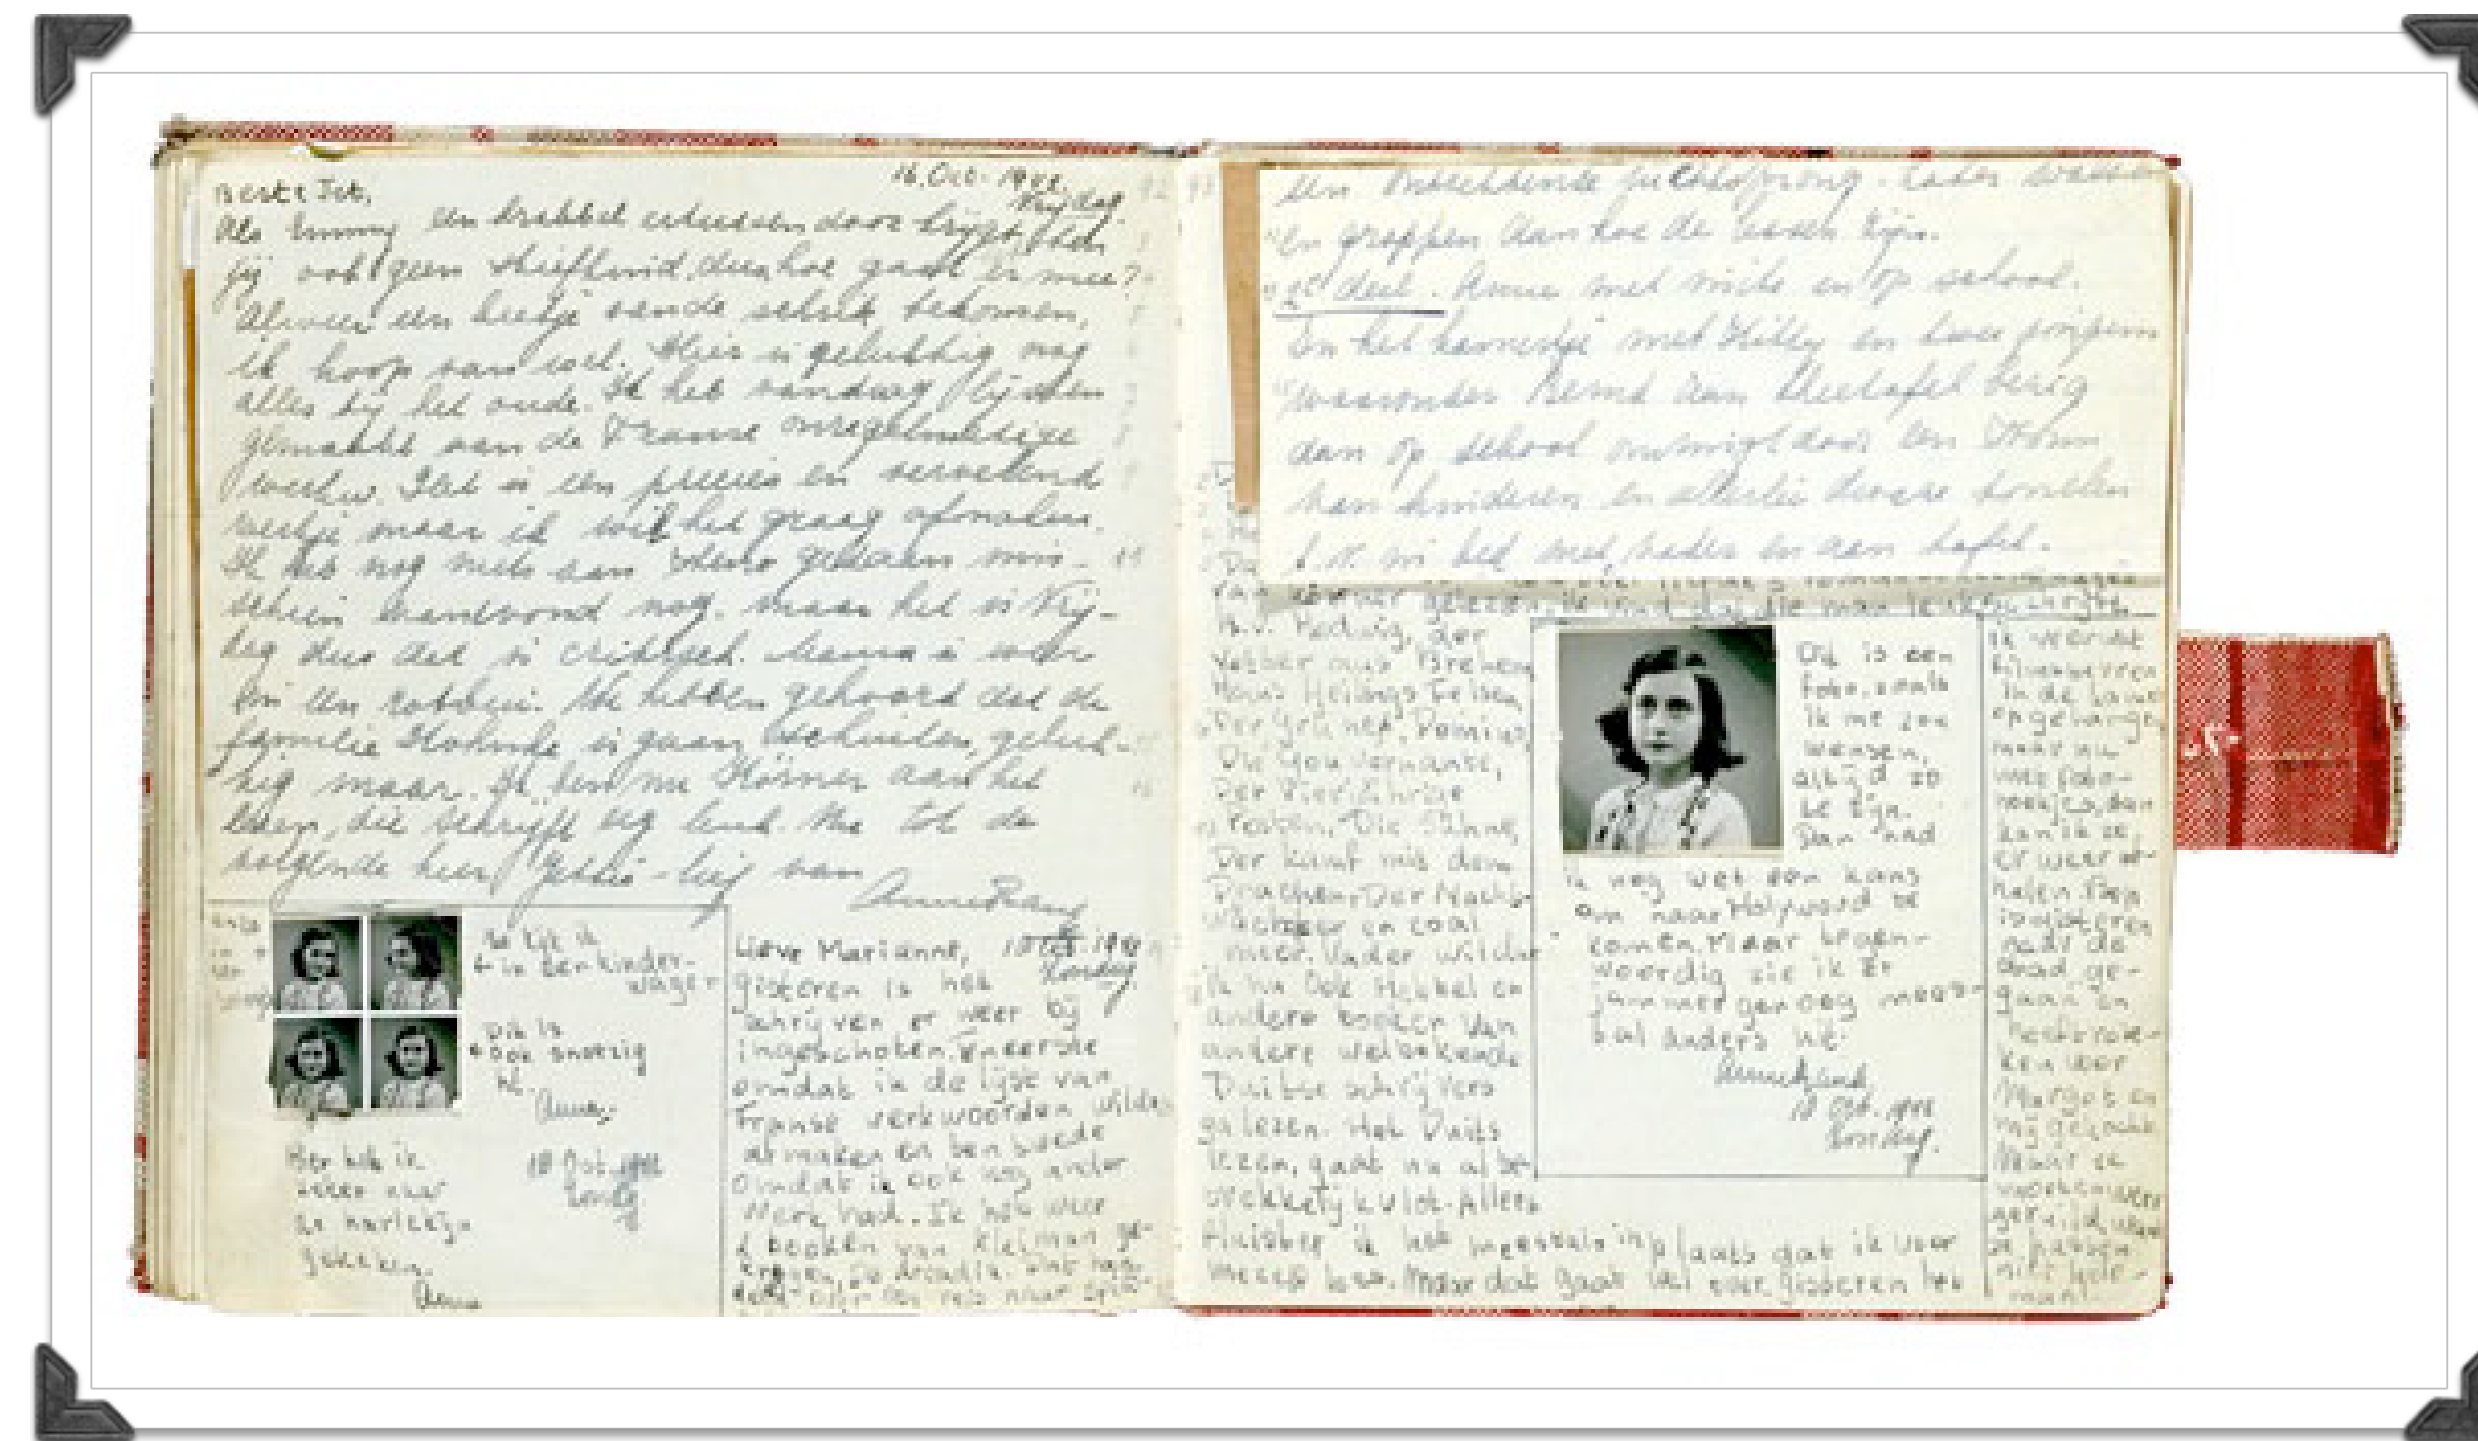 16. Oct. 1942.
Vrijdag.
Beste Jet,
Als Emmy een krabbel ertussen door krijgt, ben
jij ook geen stiefkind, dus hoe gaat er mee?
Alweer een beetje van de schrik bekomen,
ik hoop van wel. Hier is gelukkig nog
alles bij het oude. Ik heb vandaag lijsten
gemaakt van de Franse onregelmatige
werkw. Dat is een precies en vervelend
werkje maar ik wil het graag afmaken.
Ik heb nog niets aan steno gedaan mis-
schien vanavond nog. maar het is Vrij-
dag dus dat is critisch. Mama is weer
in een rotbui. We hebben gehoord dat de
familie is gaan schuilen, geluk-
kig maar. Ik ben nu Körner aan het
lezen, die schrijft erg leuk. Nu tot de
volgende keer van
Anne Frank
Zo kijk ik
in een kinder-
wagen
Dit is
ook snoezig
hè.
Anne
18 Oct. 1942
Zondag
Hier heb ik
naar
de harlekijn
gekeken.
Anne
Lieve Marianne, 18 Oct. 1942
Zondag.
gisteren is het
schrijven er weer bij
ingeschoten. Teneerste
omdat ik de lijst van
Franse werkwoorden wilde
afmaken en ten tweede
omdat ik ook nog ander
werk had. Ik heb weer
2 boeken van Kleiman ge-
kregen, De Arcadia. dat
over een reis naar
een
En grappen aan hoe de assen zijn.
2e deel. Anne met en op school.
En het kamertje met Kitty en twee
waarvan Bernd aan theetafel bezig
dan op school omringd door een stroom
van kinderen en allerlei dwaze tonelen
b.v. in bed met vader en aan tafel.
van Körner gelezen, ik vind dat die man leuk schrijft.
B.v. Hedwig, der
Vetter aus Bremen,
Hans Heilings Felsen,
Der Grüne Domino,
Die Gouvernante,
Der Vierjährige
Posten, Die Sühne,
Der Kampf mit dem
Drachen, Der Nacht-
wächter en zoal
meer. Vader wil dat
ik nu ook Hebbel en
andere boeken van
andere welbekende
Duitse schrijvers
ga lezen. Het Duits
lezen, gaat nu al be-
trekkelijk vlot. Alleen
fluister ik het meestal in plaats dat ik voor
mezelf lees. Maar dat gaat wel over. gisteren heb
Dit is een
foto, zoals
ik me zou
wensen,
altijd zo
te zijn.
Dan had
ik nog wel een kans
om naar Holywood te
komen. Maar tegen-
woordig zie ik er
jammer genoeg mees-
tal anders uit.
Anne Frank
18 Oct. 1942
Zondag.
ik weer wat
filmsterren
in de kamer
opgehangen,
maar nu
met foto-
hoekjes, dan
kan ik ze
er weer af-
halen. Bep
is gisteren
naar de
stad ge-
gaan en
heeft rok-
ken voor
Margot en
mij gekocht.
Maar ze
moeten weer
geruild, want
ze passen
niet hele-
maal.